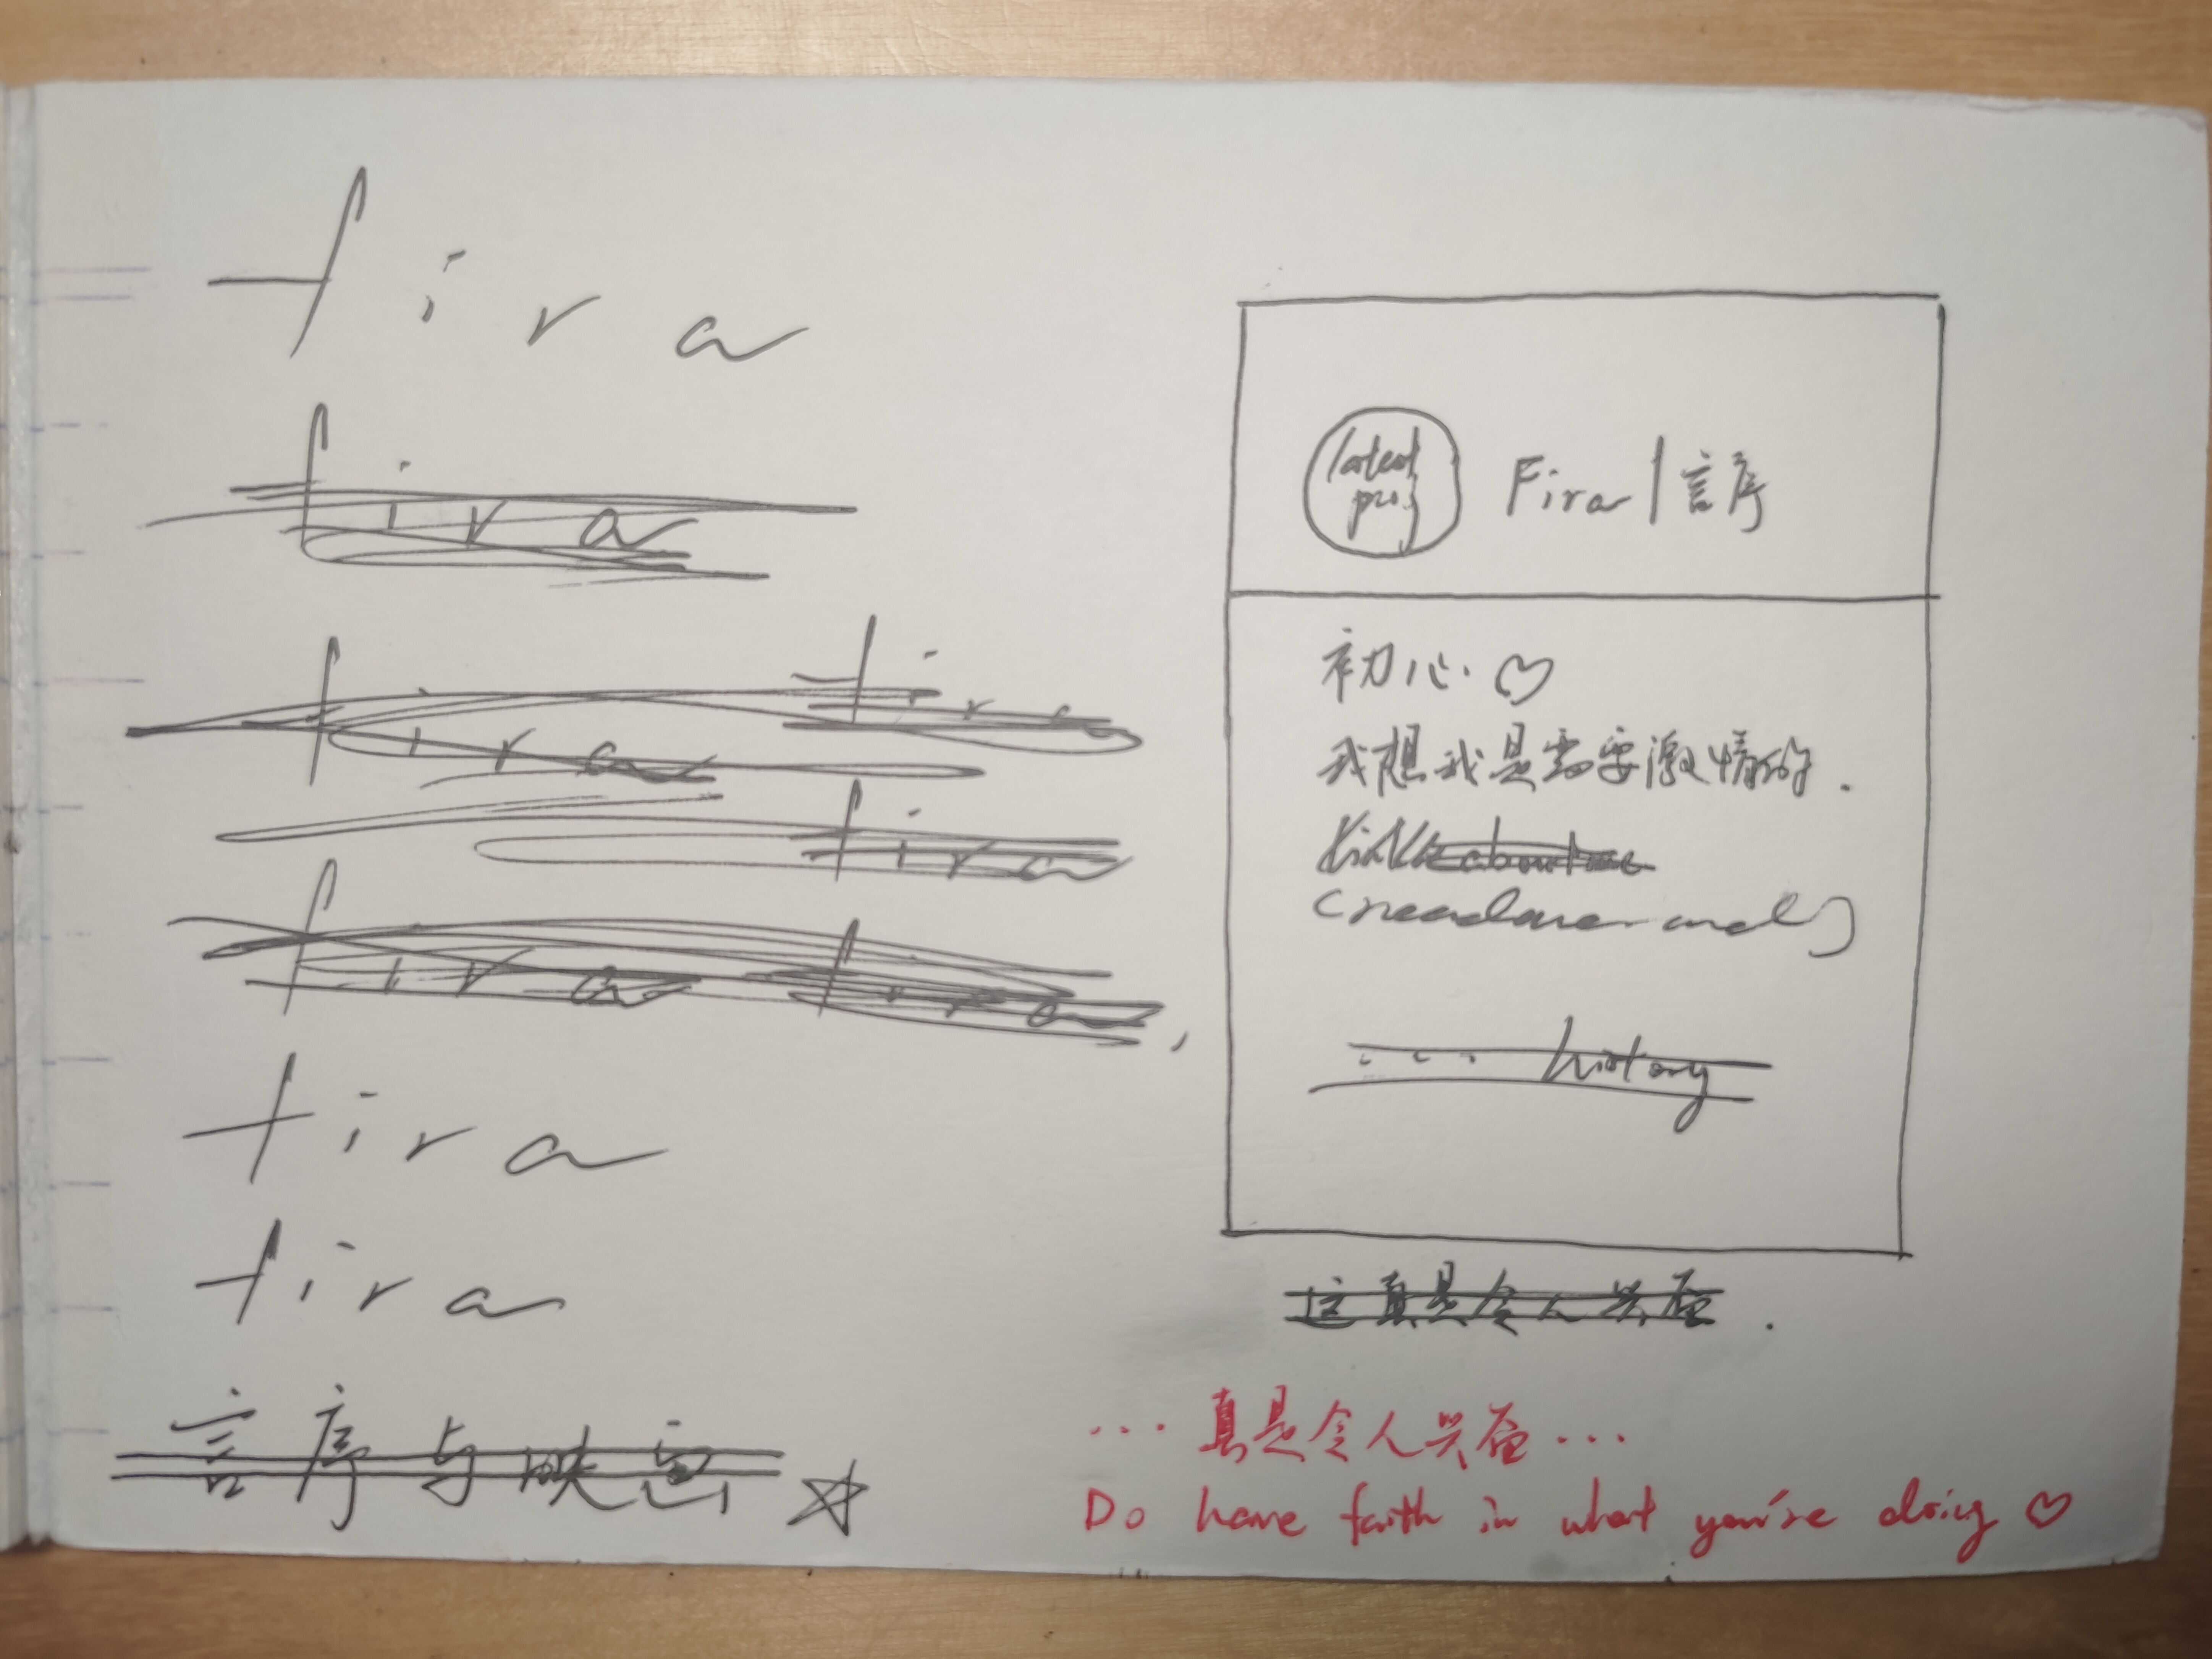 fira
fira
fira
fira
fira
fira
fira
fira
fira
言序与映
latest
proj
Fira | 言序
初心. ♡
我想我是需要激情的.
link about me
(readme.md)
... history
这真是令人兴奋.
... 真是令人兴奋 ...
Do have faith in what you're doing ♡